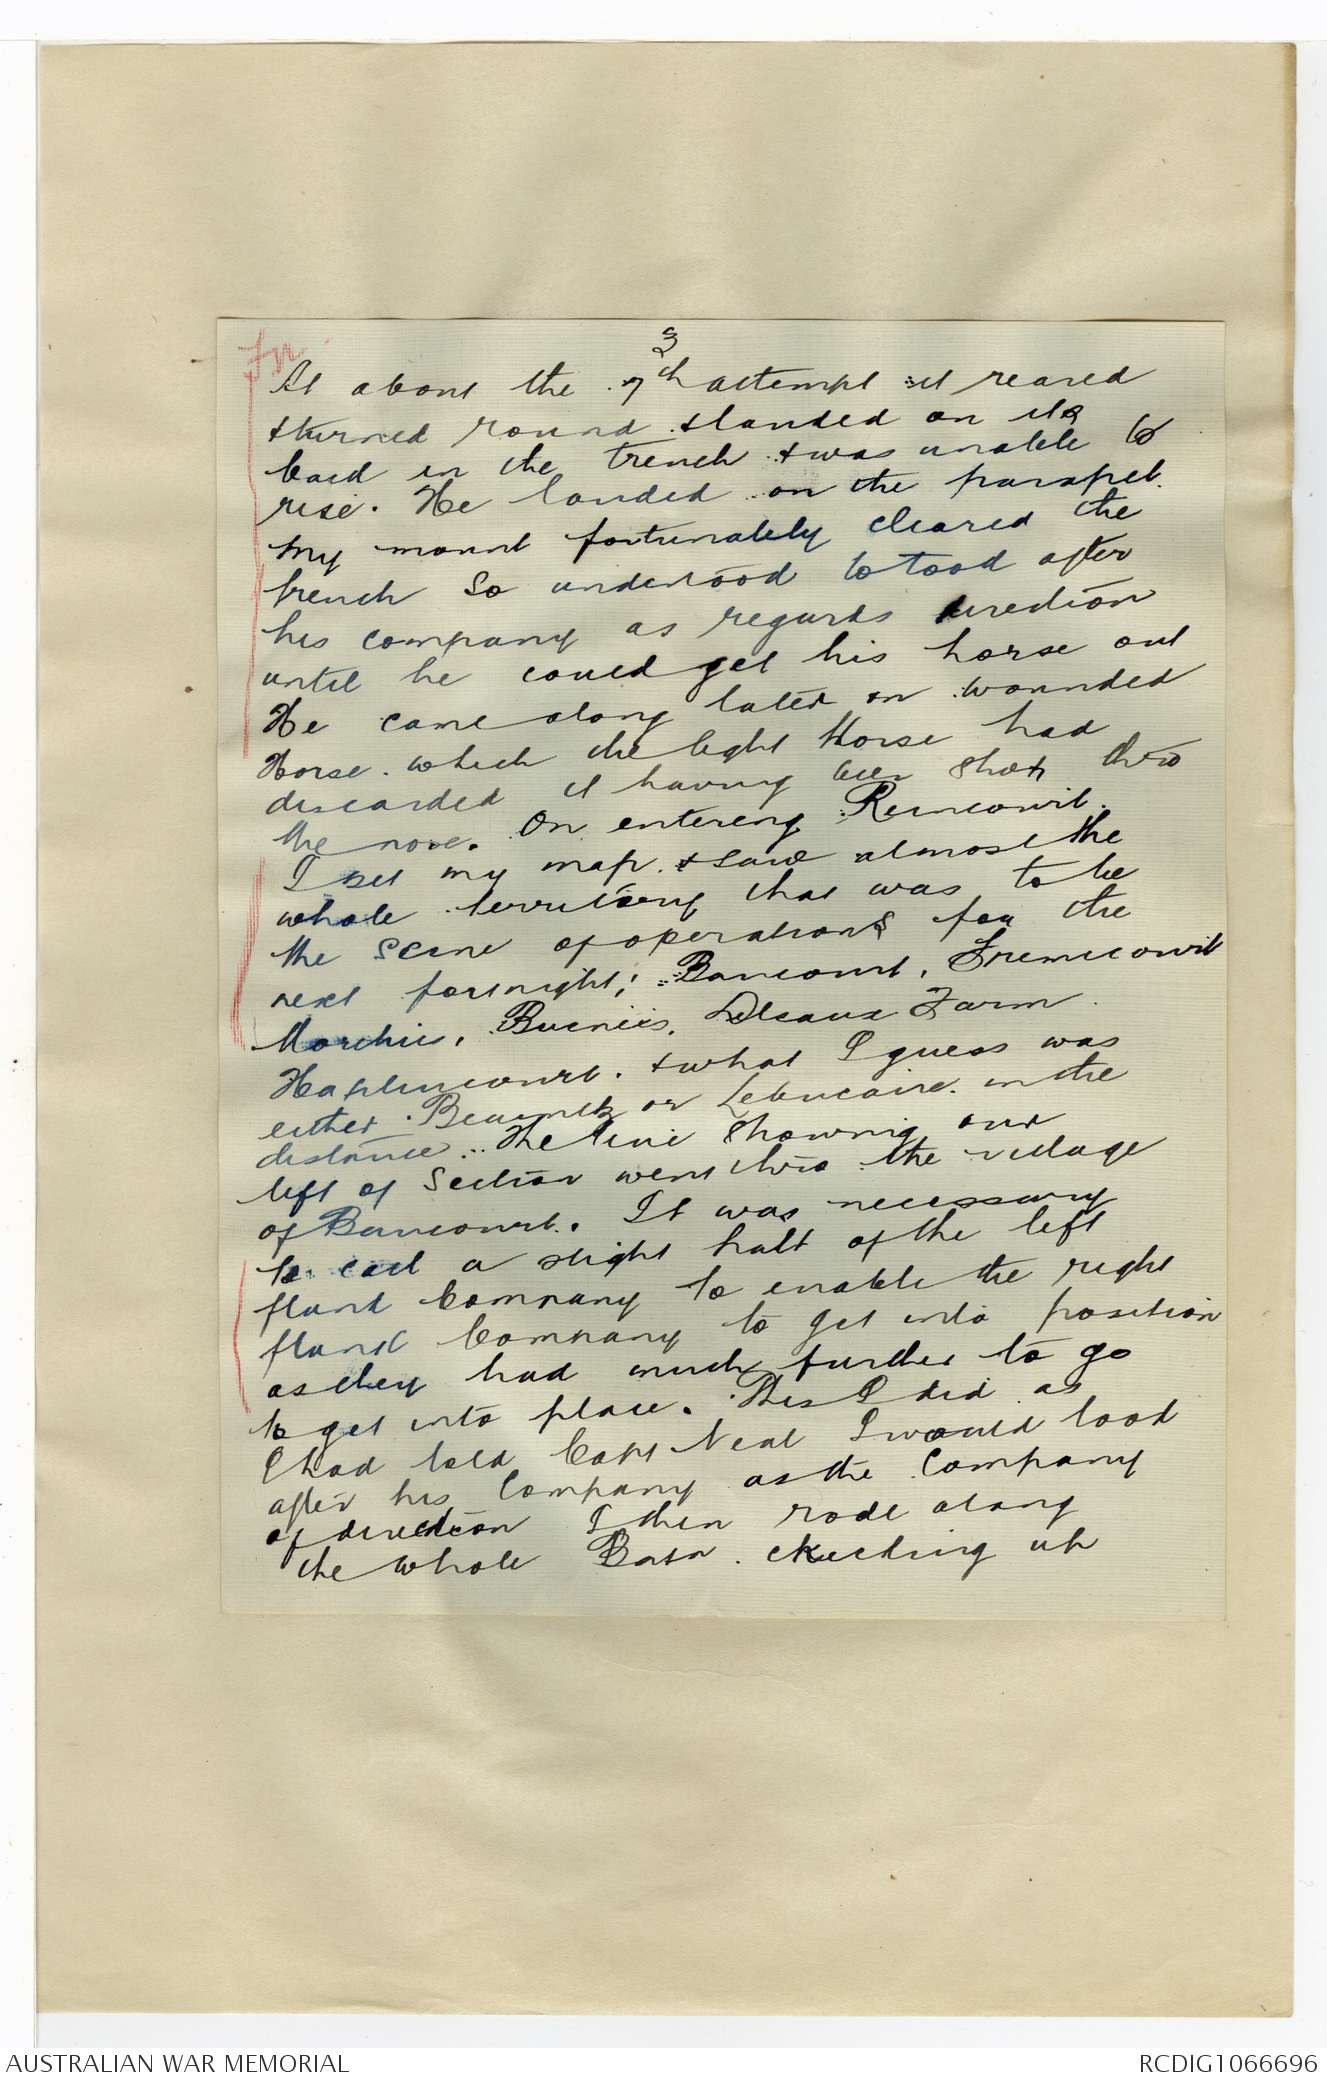 3
At about the 7th attempt it reared
& turned round & landed on its
back in the trench & was unable to
rise. He landed on the parapet.
My mount fortunately cleared the
trench so undertood to look after
his company as regards direction
until he could get his horse out
He came along later on wounded
Horse. which the light Horse had
discarded it having been shot thro
the nose. On entering Riencourt.
I set my map. & saw almost the
whole territory that was to be
the scene of operations for the
next fortnight; Bancourt, Fremicourt
Morchies, Beugnies, Delsaux Farm
Haplincourt. & what I guess was
either Beaumetz or Lebucaire. in the
distance. The line showing our
left of Section went thro the village
of Bancourt. It was necessary
to call a slight halt of the left
flank Company to enable the right
flank Company to get into position
as they had much further to go
to get into place. This I did as
I had told Capt Neal I would look
after his Company as the Company
of direction I then rode along
the whole Battn. checking up
AUSTRALIAN WAR MEMORIAL
RCDIG1066696